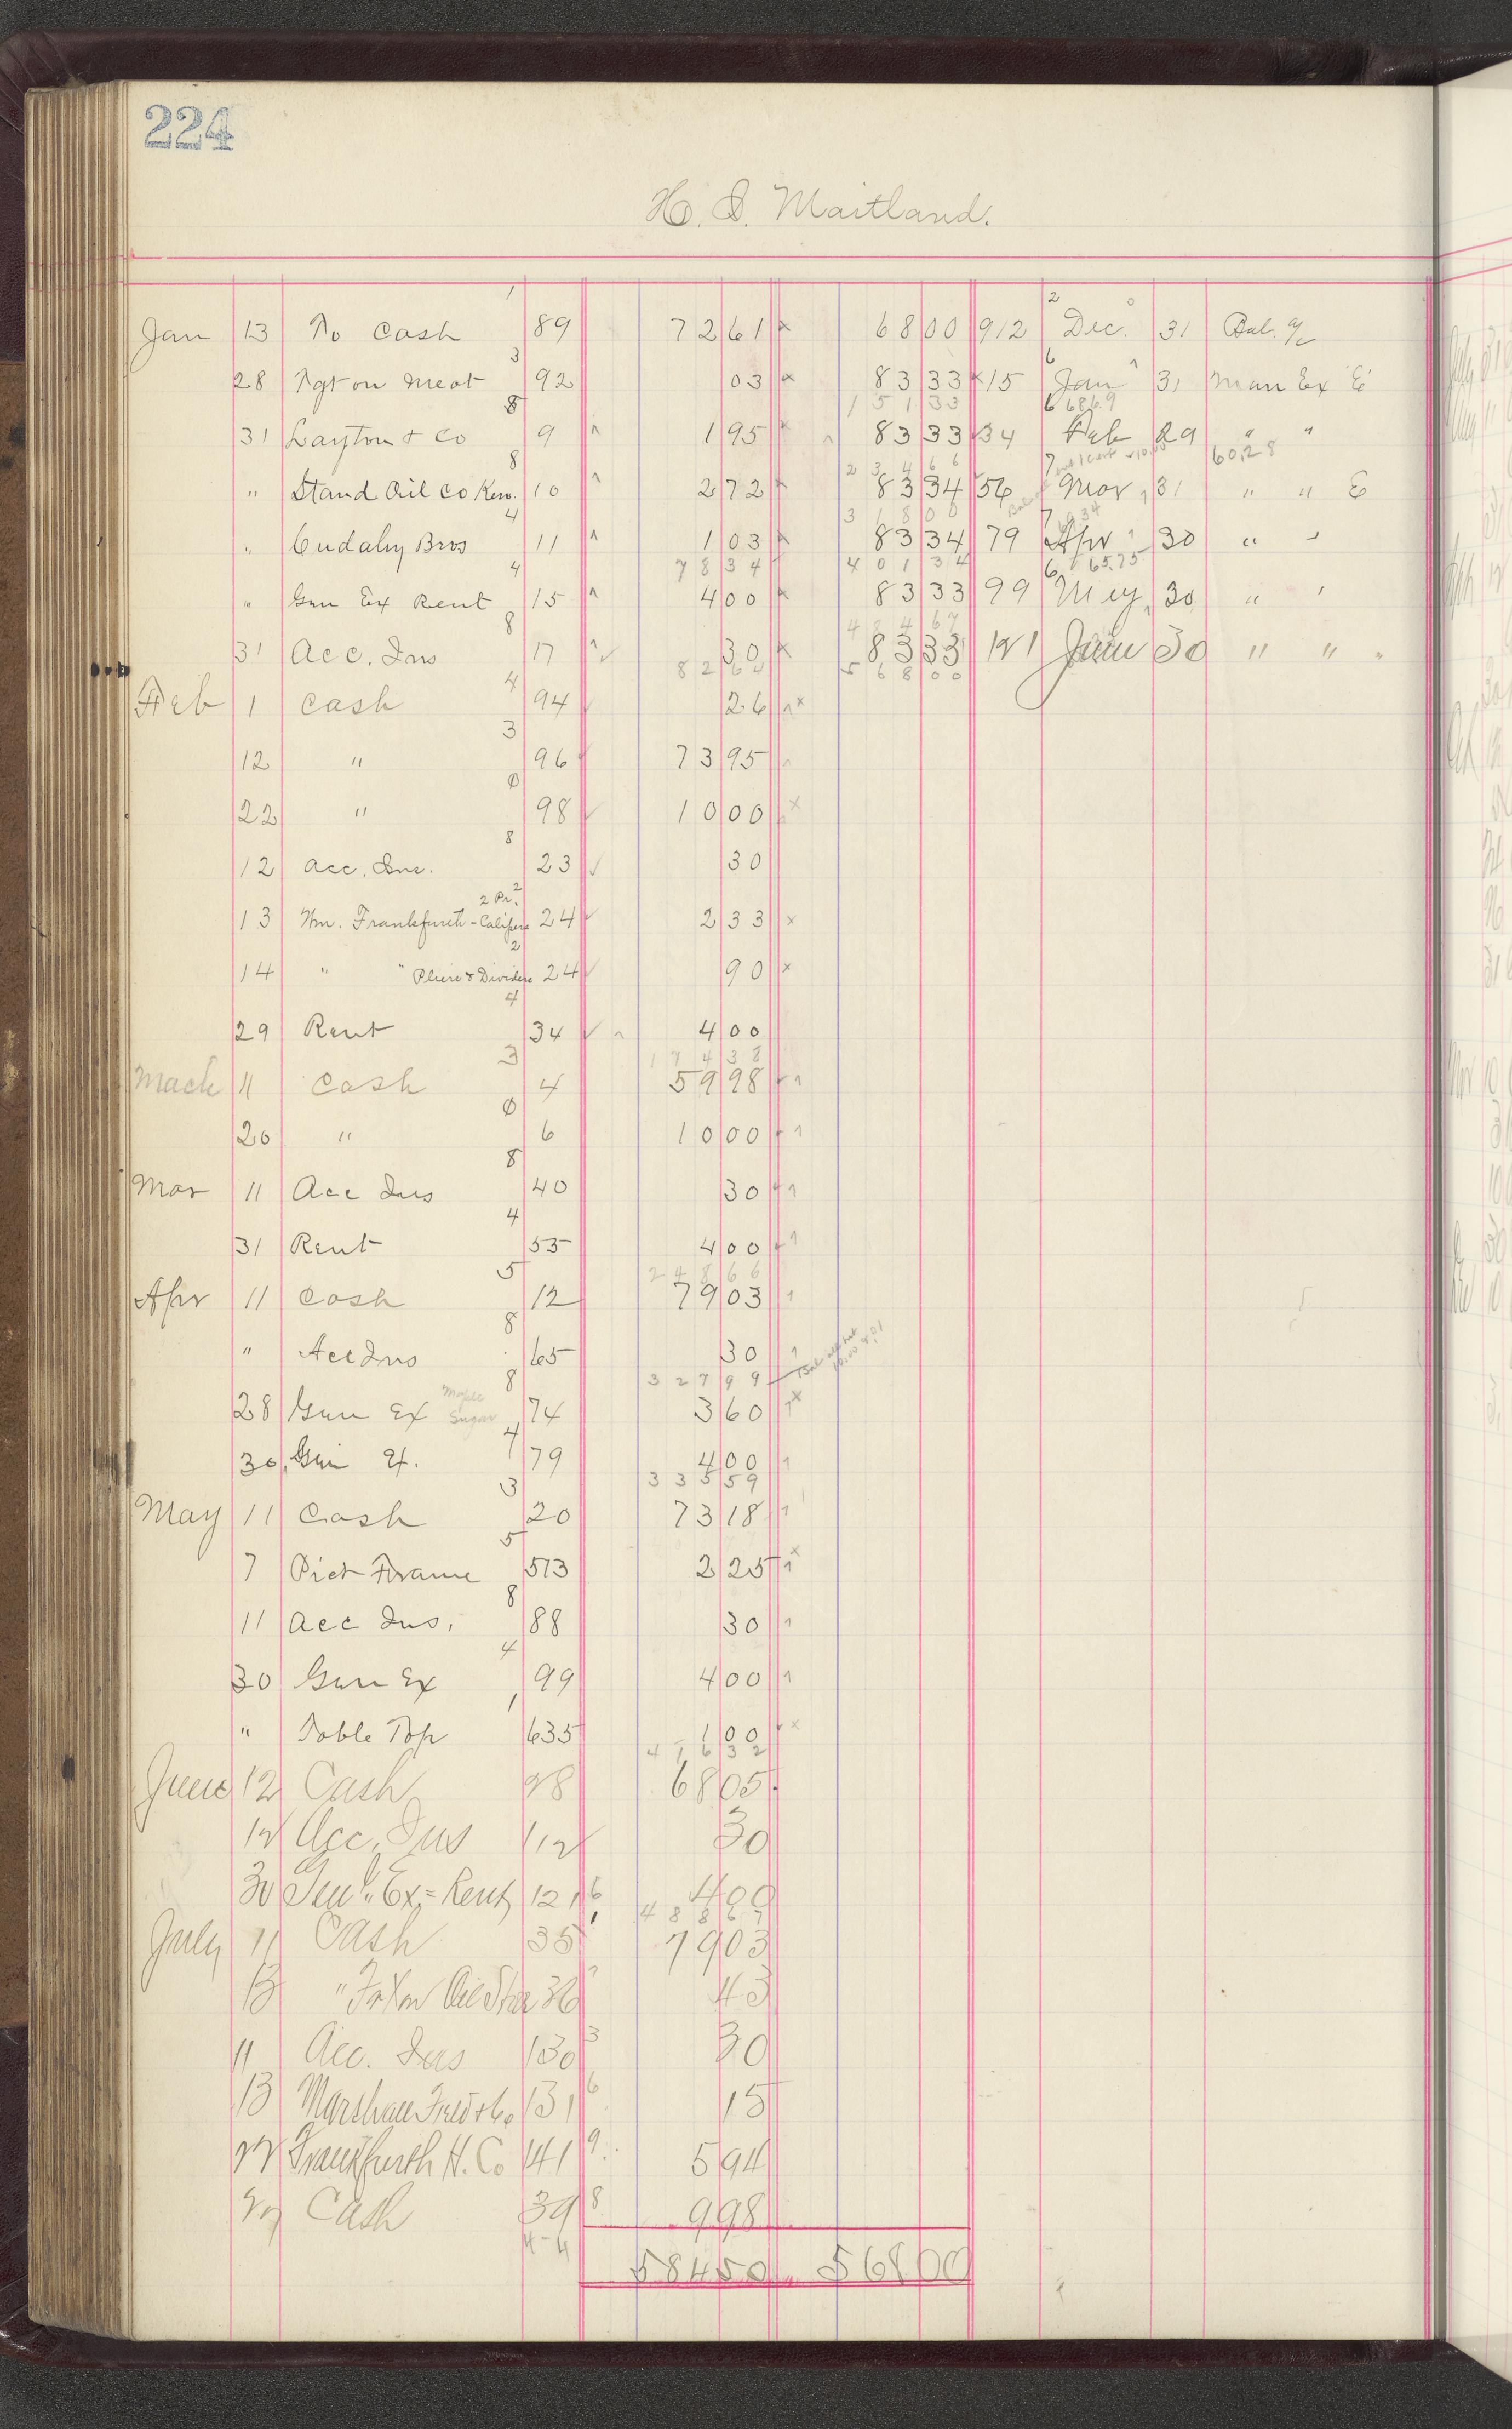 224
H. I. Maitland.
Jan 13 To Cash 89 72 61 68 00 912 Dec. 31 Bal.
28 Fgt on Meat 92 03 83 33 15 Jan 31 Man Ex E
1 5 1 33
31 Layton & Co 9 1 95 83 33 34 Feb 29 " "
2 3 4 6 6 60,28
" Stand Oil Co Ken. 10 2 72 83 34 56 Mar 31 " " E
3 1 8 0 0
" Cudahy Bros 11 1 03 83 34 79 Apr 30 " "
7 8 3 4 4 0 1 3 4 65.75
" Gen Ex Rent 15 4 00 83 33 99 May 30 " "
4 8 4 6 7
31 Acc. Ins 17 30 83 33 121 June 30 " "
8 2 6 4 5 6 8 0 0
Feb 1 Cash 94 26
12 " 96 73 95
22 " 98 10 00
12 Acc. Ins. 23 30
2 Pr.
13 Wm. Frankfurth - Calipers 24 2 33
14 " " Pliers & Dividers 24 90
29 Rent 34 4 00
1 7 4 3 8
Mach 11 Cash 4 59 98
20 " 6 10 00
Mar 11 Acc Ins 40 30
31 Rent 55 4 00
2 4 8 6 6
Apr 11 Cash 12 79 03
" Acc Ins 65 30
3 2 7 9 9
28 Gen Ex Maple Sugar 74 3 60
30 Gen Ex. 79 4 00
3 3 5 5 9
May 11 Cash 20 73 18
7 Pict Frame 513 2 25
11 Acc Ins. 88 30
30 Gen Ex 99 4 00
" Table Top 635 1 00
4 1 6 3 2
June 12 Cash 28 68 05
12 Acc. Ins 112 30
30 Genl. Ex = Rent 121 4 00
4 8 8 6 7
July 11 Cash 35 79 03
13 " 36 43
11 Acc. Ins 130 30
13 Marshall Field & Co 131 15
22 Frankfurth H. Co 141 5 94
27 Cash 39 9 98
584 50 568 00